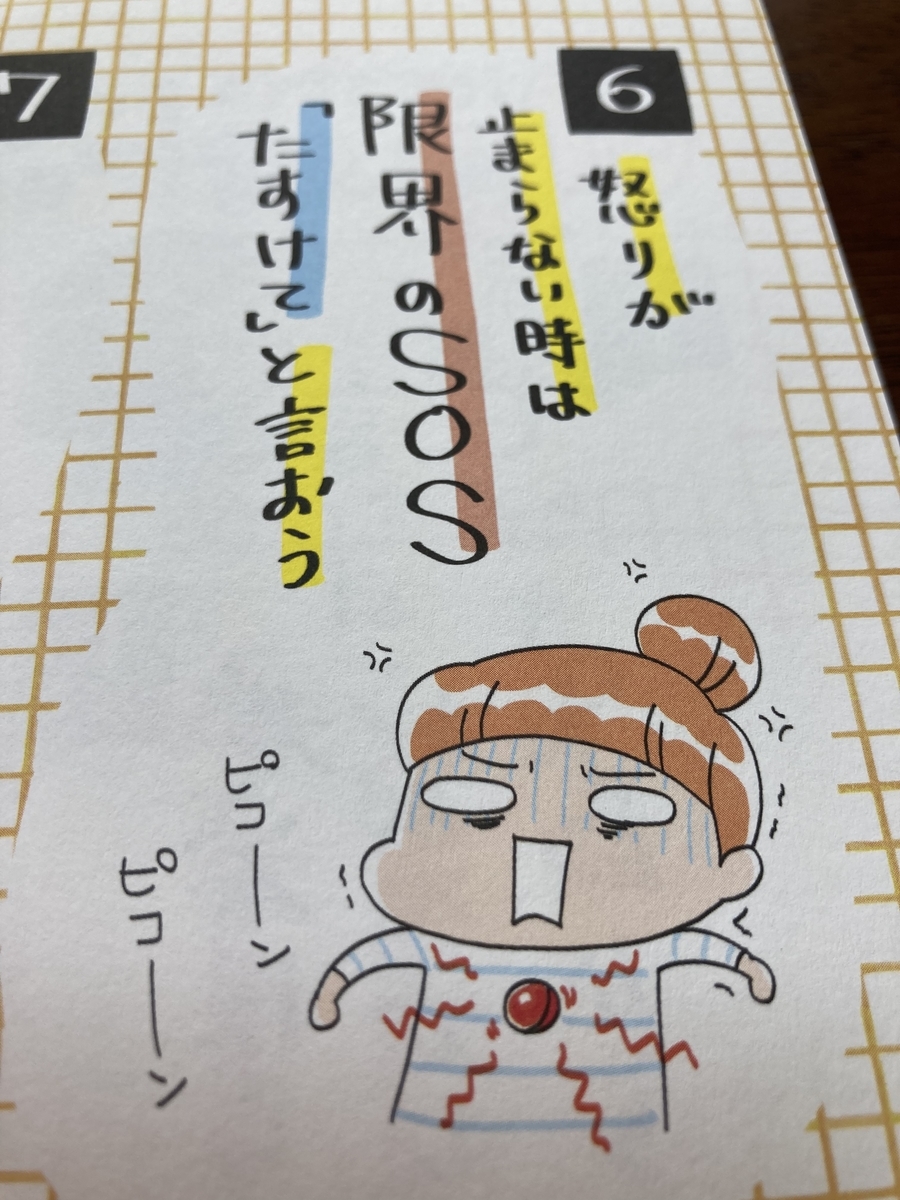 6
怒りが
止まらない時は
限界のSOS
「たすけて」と言おう
ピコーン
ピコーン
7